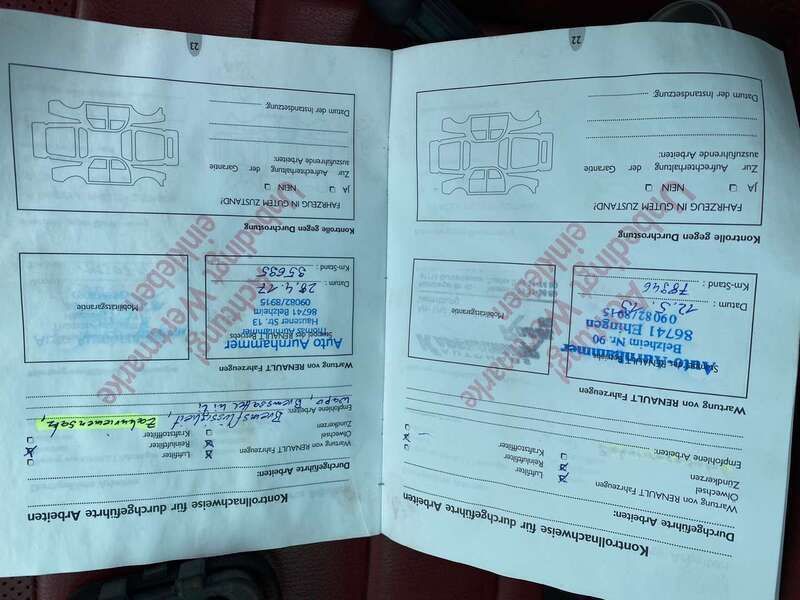 22
Kontrollnachweise für durchgeführte Arbeiten
Durchgeführte Arbeiten:
Wartung von RENAULT Fahrzeugen
Ölwechsel
Luftfilter
Zündkerzen
Reinluftfilter
Kraftstofffilter
Empfohlene Arbeiten:
Wartung von RENAULT Fahrzeugen
Auto Aurnhammer
Belzheim Nr. 90
86741 Ehingen
09082/8915
Datum :
12.3.13
Km-Stand :
78346
Mobilitätsgarantie
Achtung!
Unbedingt Wertmarke
einkleben!
Kontrolle gegen Durchrostung
FAHRZEUG IN GUTEM ZUSTAND!
JA
NEIN
Zur Aufrechterhaltung der Garantie
auszuführende Arbeiten:
Datum der Instandsetzung:
23
Kontrollnachweise für durchgeführte Arbeiten
Durchgeführte Arbeiten:
Wartung von RENAULT Fahrzeugen
Ölwechsel
Luftfilter
Zündkerzen
Reinluftfilter
Kraftstofffilter
Empfohlene Arbeiten:
Bremsflüssigkeit, Zahnriemensatz,
Wapu, Bremssattel hi li
Wartung von RENAULT Fahrzeugen
Stempel des RENAULT Betriebs
Auto Aurnhammer
Thomas Aurnhammer
Hausener Str. 13
86741 Belzheim
09082/8915
Datum :
28.4.17
Km-Stand :
95695
Mobilitätsgarantie
Achtung!
Unbedingt Wertmarke
einkleben!
Kontrolle gegen Durchrostung
FAHRZEUG IN GUTEM ZUSTAND!
JA
NEIN
Zur Aufrechterhaltung der Garantie
auszuführende Arbeiten:
Datum der Instandsetzung: